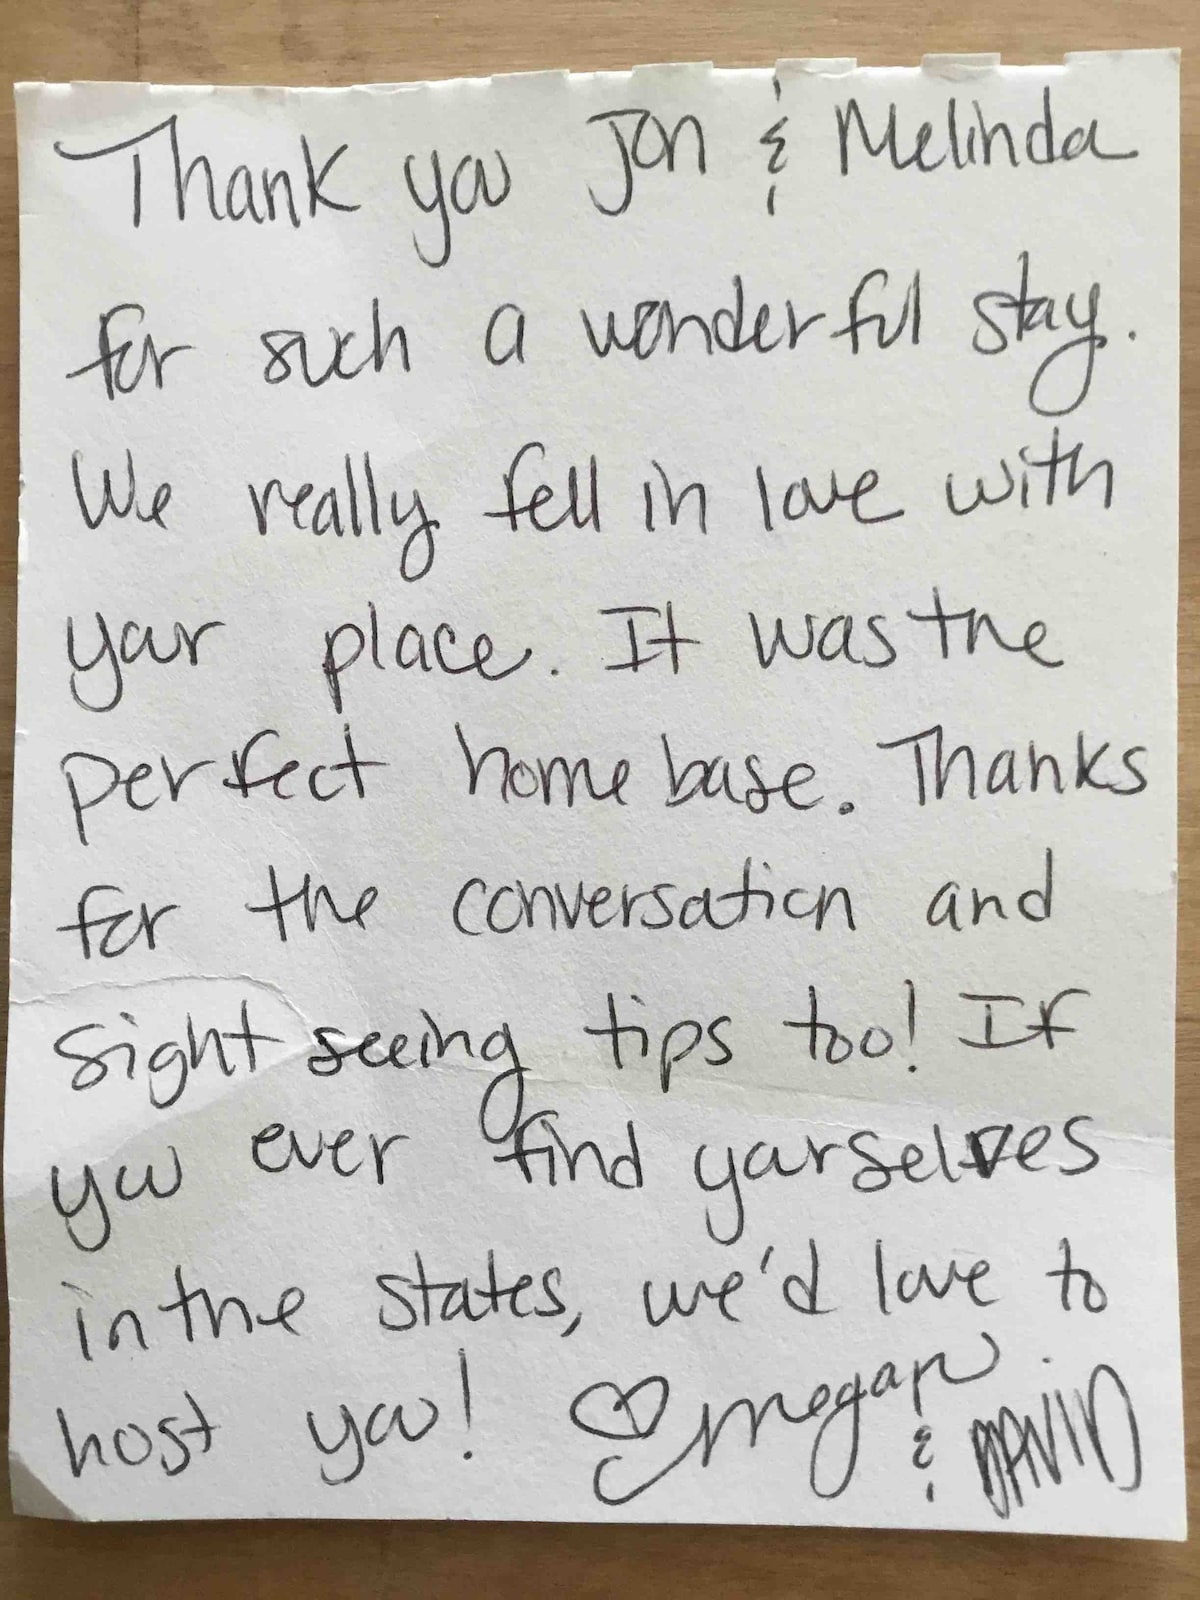 Thank you Jon & Melinda
for such a wonderful stay.
We really fell in love with
your place. It was the
perfect home base. Thanks
for the conversation and
sight seeing tips too! If
you ever find yourselves
in the states, we'd love to
host you! ♡ Megan
& DAVID